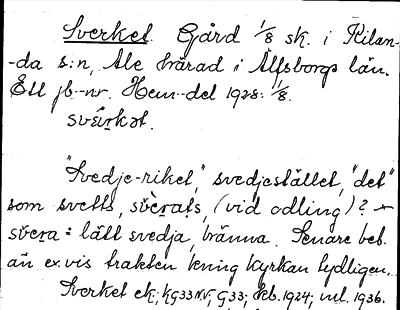 Sverket. Gård 1/8 sk. i Kilan-
-da s:n, Ale härad i Älfsborgs län.
Ett jb.-nr. Hem-del 1928: 1/8.
svä̀rkət.
"Svedje-riket," svedjestället, "det"
som svetts, svèrats, (vid odling)?
svera = lätt svedja, bränna. Senare beb.
än ex.vis trakten kring kyrkan tydligen.
Sverket ek; kG33NV, G33; beb. 1924; utl. 1936.